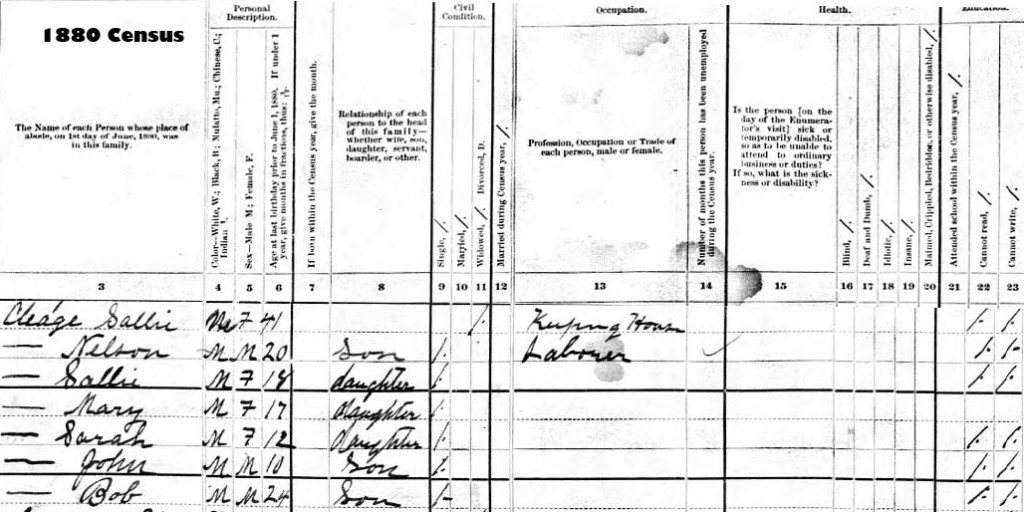 1880 Census
Personal Description.
Civil Condition.
Occupation.
Health.
Education.
The Name of each Person whose place of abode, on 1st day of June, 1880, was in this family.
Color—White, W.; Black, B.; Mulatto, Mu.; Chinese, C.; Indian, I.
Sex—Male M.; Female, F.
Age at last birthday prior to June 1, 1880. If under 1 year, give months in fractions, thus:
If born within the Census year, give the month.
Relationship of each person to the head of this family—whether wife, son, daughter, servant, boarder, or other.
Single, /.
Married, /.
Widowed, /. Divorced, D.
Married during Census year, /.
Profession, Occupation or Trade of each person, male or female.
Number of months this person has been unemployed during the Census year.
Is the person [on the day of the Enumerator's visit] sick or temporarily disabled, so as to be unable to attend to ordinary business or duties? If so, what is the sickness or disability?
Blind, /.
Deaf and Dumb, /.
Idiotic, /.
Insane, /.
Maimed, Crippled, Bedridden, or otherwise disabled, /.
Attended school within the Census year, /.
Cannot read, /.
Cannot write, /.
3 4 5 6 7 8 9 10 11 12 13 14 15 16 17 18 19 20 21 22 23
Cleage Sallie F 41 /. Keeping House /. /.
— Nelson M M 20 Son /. Laborer /. /.
— Sallie M F 18 daughter /. /. /.
— Mary M F 17 daughter /.
— Sarah M F 12 daughter /. /. /.
— John M M 10 Son /. /. /.
— Bob M M 24 Son /. /. /.